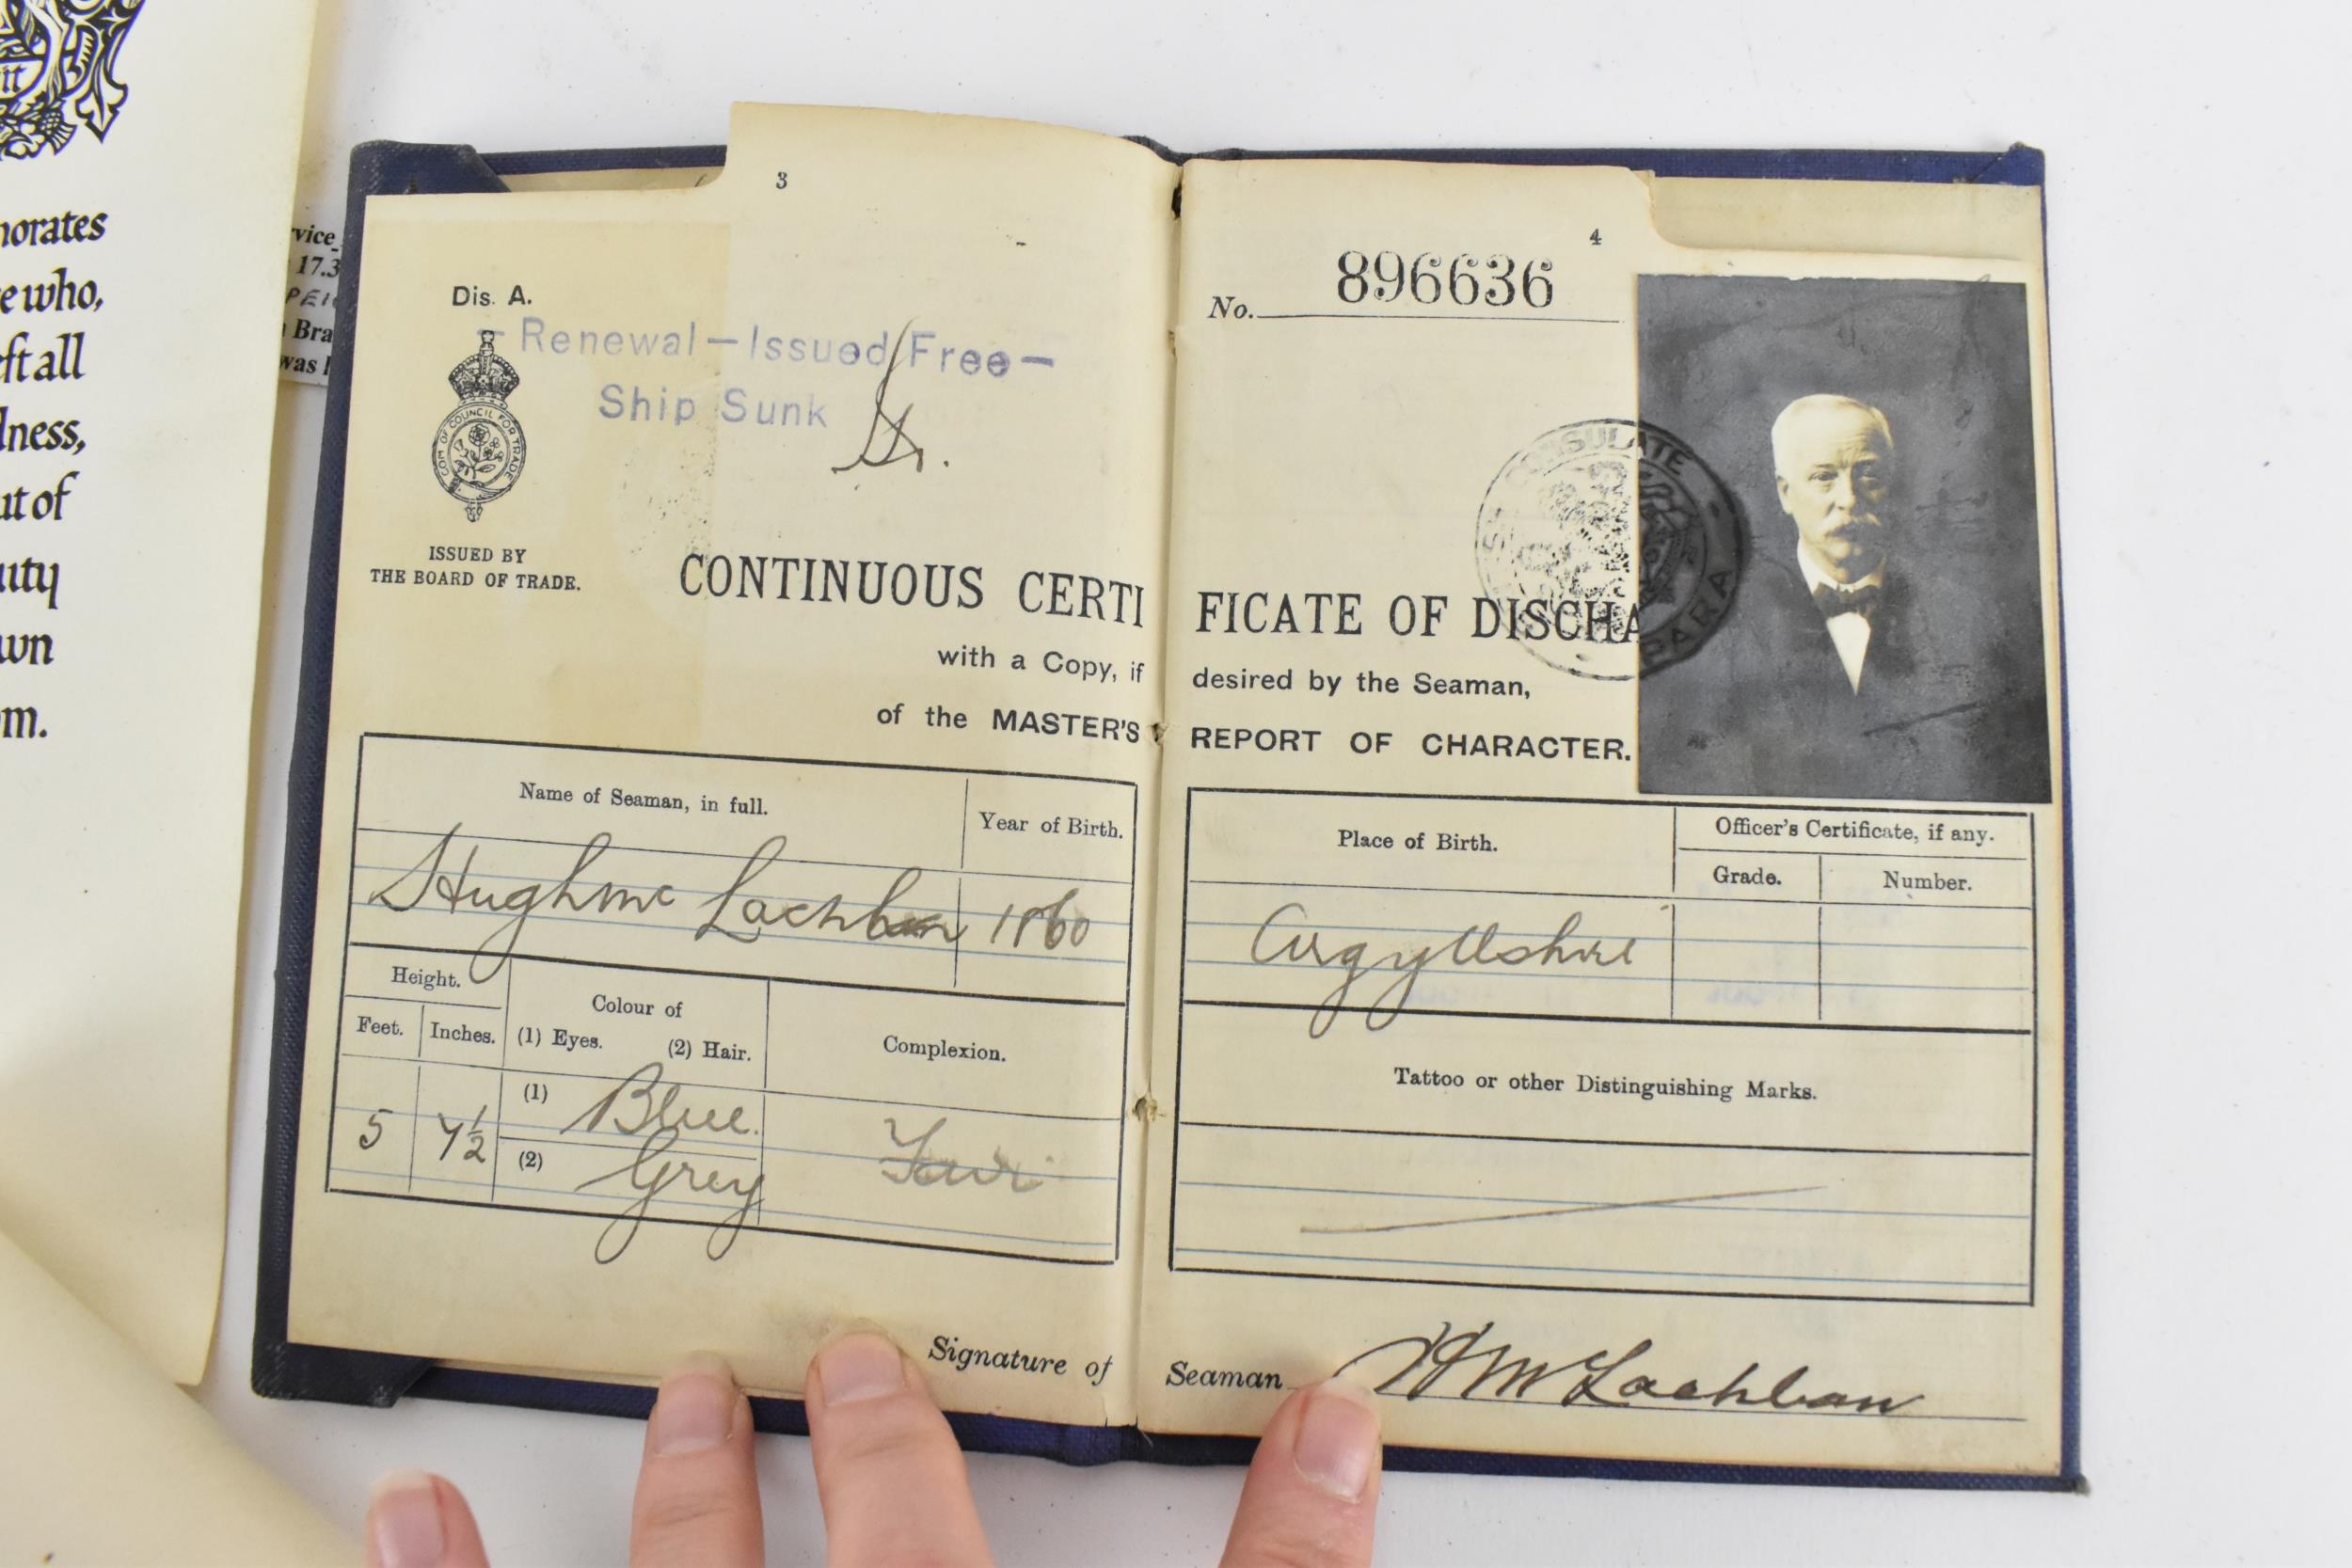 it
norates
e who,
eft all
lness,
ut of
uty
wn
m.
rvice
17.3
Bra
was
3
Dis. A.
Renewal - Issued Free -
Ship Sunk
COM OF COUNCIL FOR TRADE
ISSUED BY
THE BOARD OF TRADE.
CONTINUOUS CERTI
with a Copy, if
of the MASTER'S
Name of Seaman, in full.
Year of Birth.
Hugh Mc Lachlan
1860
Height.
Feet.
Inches.
Colour of
(1) Eyes.
(2) Hair.
Complexion.
5
7½
(1) Blue.
(2) Grey
Fair
Signature of
4
No. 896636
CONSULATE
PARA
FICATE OF DISCHA
desired by the Seaman,
REPORT OF CHARACTER.
Place of Birth.
Officer's Certificate, if any.
Grade.
Number.
Argyllshire
Tattoo or other Distinguishing Marks.
Seaman H McLachlan